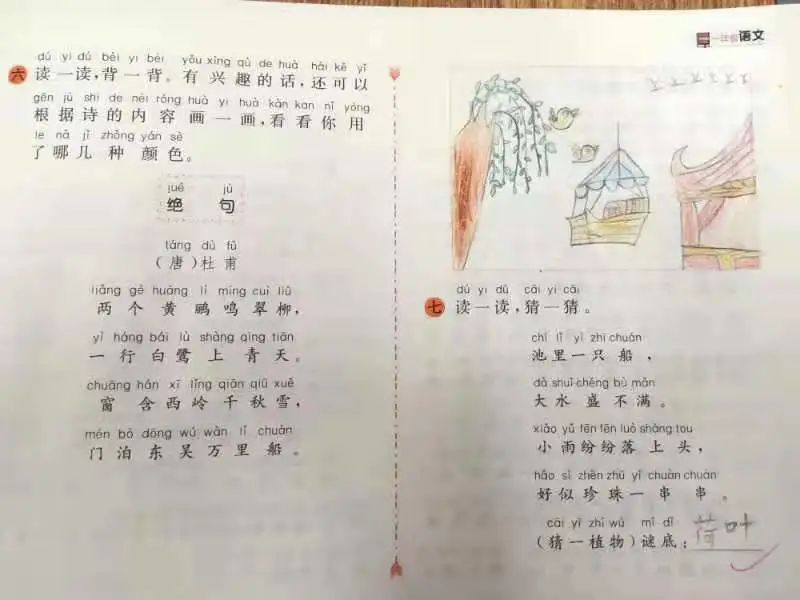 一年级语文
dú yi dú bèi yi bèi yǒu xìng qù de huà hái kě yǐ
六 读一读,背一背。有兴趣的话,还可以
gēn jù shī de nèi róng huà yi huà kàn kan nǐ yòng
根据诗的内容画一画,看看你用
le nǎ jǐ zhǒng yán sè
了哪几种颜色。
jué jù
绝句
táng dù fǔ
(唐)杜甫
liǎng gè huáng lí míng cuì liǔ
两个黄鹂鸣翠柳,
yì háng bái lù shàng qīng tiān
一行白鹭上青天。
chuāng hán xī lǐng qiān qiū xuě
窗含西岭千秋雪,
mén bó dōng wú wàn lǐ chuán
门泊东吴万里船。
dú yi dú cāi yi cāi
七 读一读,猜一猜。
chí lǐ yì zhī chuán
池里一只船,
dà shuǐ chéng bù mǎn
大水盛不满。
xiǎo yǔ fēn fēn luò shàng tou
小雨纷纷落上头,
hǎo sì zhēn zhū yí chuàn chuàn
好似珍珠一串串。
cāi yì zhí wù mí dǐ
(猜一植物)谜底:荷叶